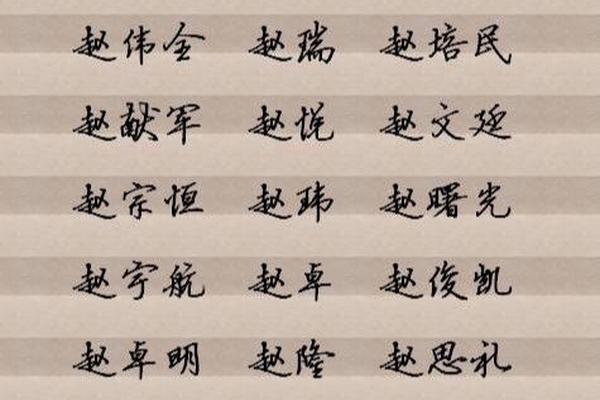 赵伟全 赵瑞 赵培民
赵献军 赵悦 赵文廷
赵宗恒 赵玮 赵曙光
赵宇航 赵卓 赵俊凯
赵卓明 赵隆 赵思礼